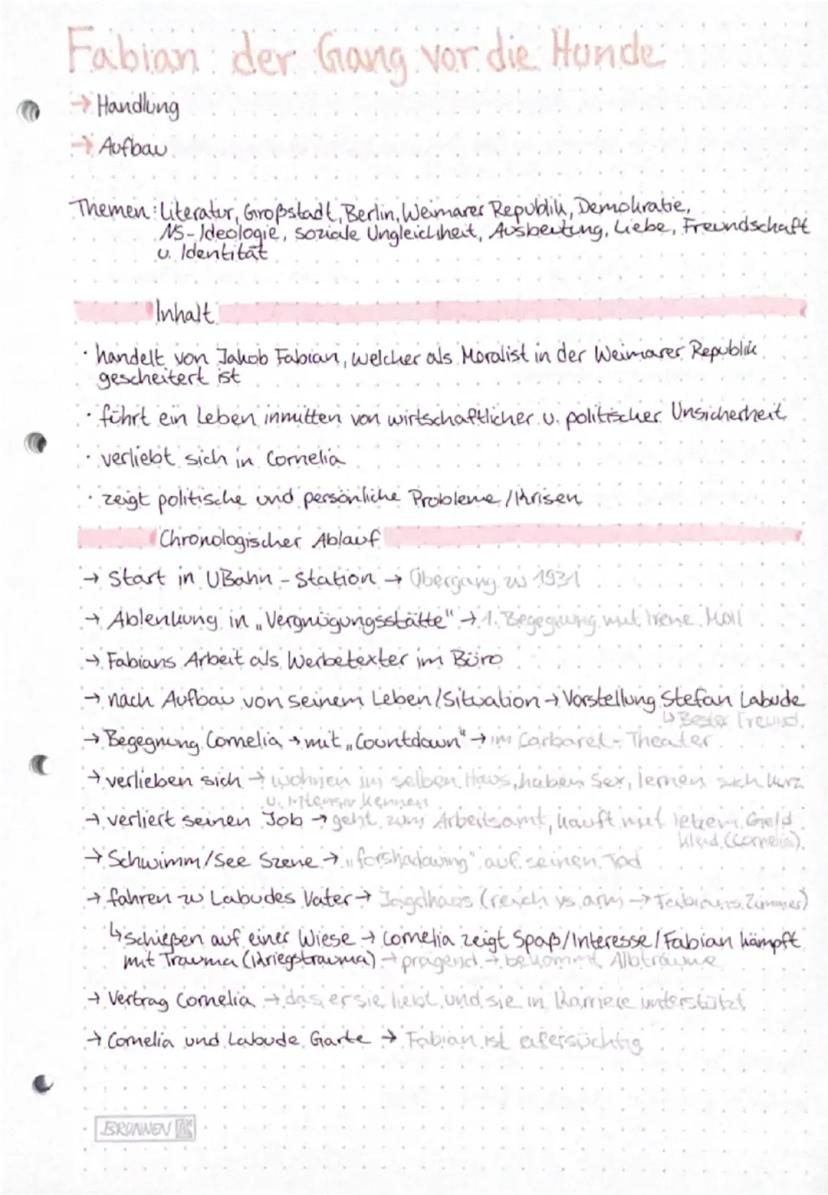 Fabian der Gang vor die Hunde
→ Handlung
→ Aufbau
Themen: Literatur, Großstadt, Berlin, Weimarer Republik, Demokratie,
NS-Ideologie, soziale Ungleichheit, Ausbeutung, Liebe, Freundschaft
u. Identität
Inhalt
· handelt von Jakob Fabian, welcher als Moralist in der Weimarer Republik
gescheitert ist
· führt ein Leben inmitten von wirtschaftlicher u. politischer Unsicherheit
· verliebt sich in Cornelia
· zeigt politische und persönliche Probleme/Krisen
Chronologischer Ablauf
→ Start in UBahn-Station → Übergang zu 1931
→ Ablenkung in „Vergnügungsstätte" → 1. Begegnung mit Irene Moll
→ Fabians Arbeit als Werbetexter im Büro
→ nach Aufbau von seinem Leben/Situation → Vorstellung Stefan Labude
↳ Bester Freund.
→ Begegnung Cornelia → mit „Countdown" → im Carbaret-Theater
→ verlieben sich → wohnen im selben Haus, haben Sex, lernen sich kurz
u. intensiv kennen
→ verliert seinen Job → geht zum Arbeitsamt, kauft mit letztem Geld
Kleid (Cornelia).
→ Schwimm/See Szene → „forshadowing" auf seinen Tod
→ fahren zu Labudes Vater → Jagdhaus (reich vs. arm → Fabians Zimmer)
↳ schießen auf einer Wiese → Cornelia zeigt Spaß/Interesse/Fabian kämpft
mit Trauma (Kriegstrauma) → prägend → bekommt Albträume
→ Vertrag Cornelia → das er sie liebt und sie in Karriere unterstützt
→ Cornelia und Labude Garte → Fabian ist eifersüchtig
BRUNNEN